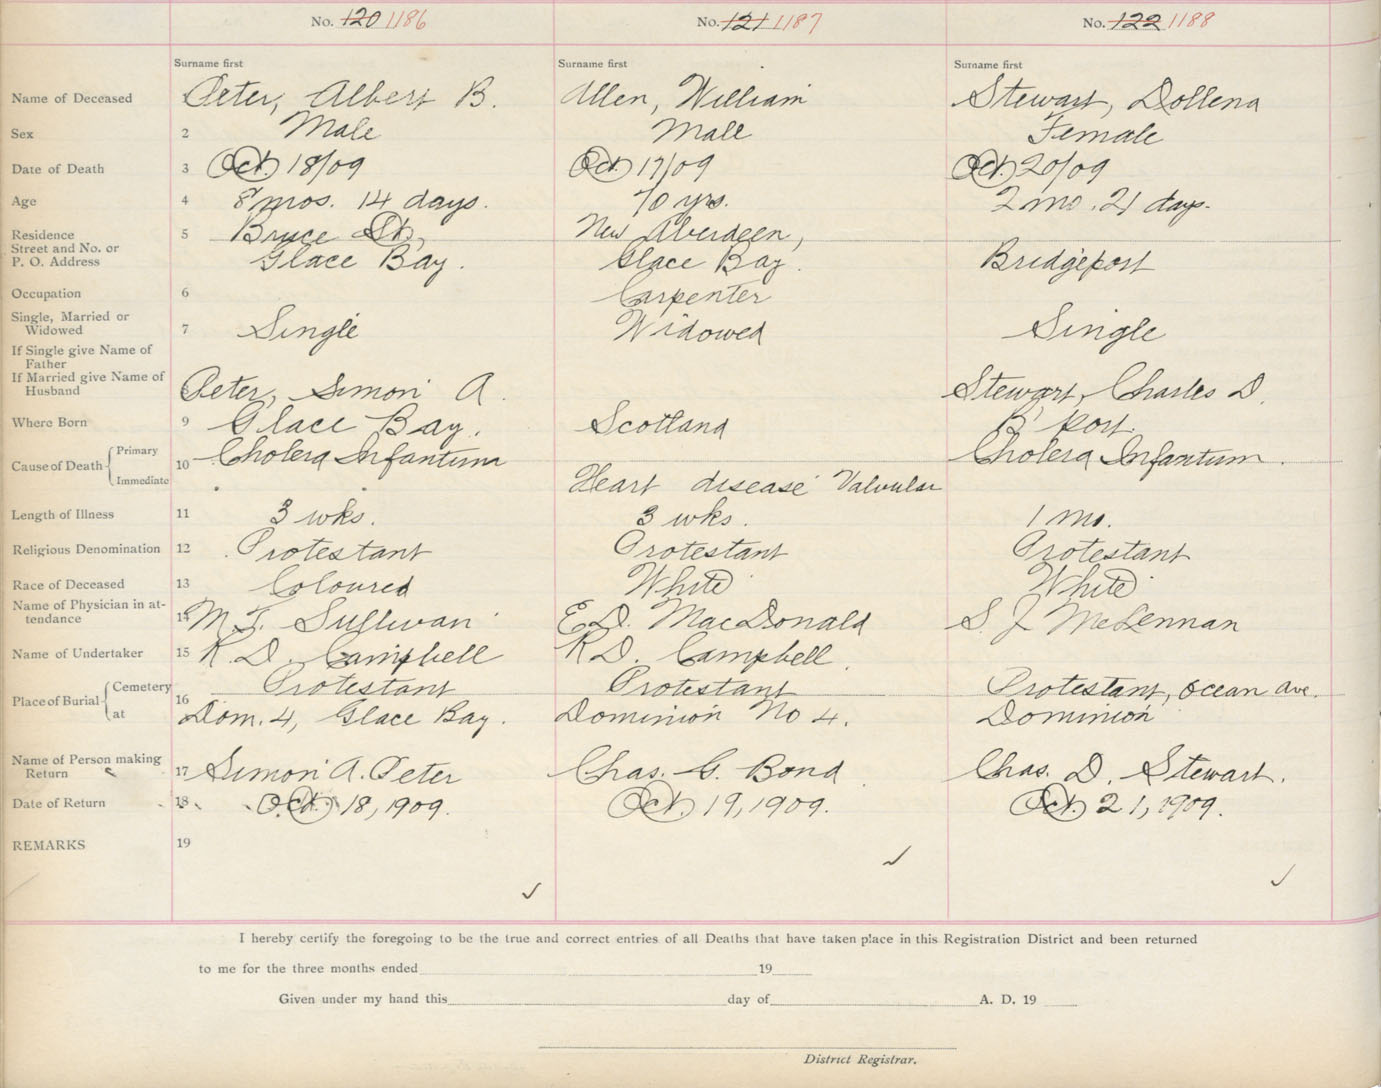 No. 120 1186 No. 121 1187 No. 122 1188
Surname first Surname first Surname first
Name of Deceased 1 Peter, Albert B. Allen, William Stewart, Dollena
Sex 2 Male Male Female
Date of Death 3 Oct. 18/09 Oct. 17/09 Oct. 20/09
Age 4 8 mos. 14 days. 70 yrs. 2 mo. 21 days.
Residence 5 Bruce St., New Aberdeen,
Street and No. or
P. O. Address Glace Bay. Glace Bay. Bridgeport
Occupation 6 Carpenter
Single, Married or
Widowed 7 Single Widowed Single
If Single give Name of
Father
If Married give Name of
Husband 8 Peter, Simon A. Stewart, Charles D.
Where Born 9 Glace Bay. Scotland B'port.
Cause of Death Primary 10 Cholera Infantum Cholera Infantum.
Immediate Heart disease Valvular
Length of Illness 11 3 wks. 3 wks. 1 mo.
Religious Denomination 12 Protestant Protestant Protestant
Race of Deceased 13 Coloured White White
Name of Physician in at-
tendance 14 M. T. Sullivan E. D. MacDonald S. J. McLennan
Name of Undertaker 15 R. D. Campbell R. D. Campbell.
Place of Burial Cemetery 16 Protestant Protestant Protestant, Ocean Ave.
at Dom. 4, Glace Bay. Dominion No 4. Dominion
Name of Person making
Return 17 Simon A. Peter Chas. G. Bond Chas. D. Stewart.
Date of Return 18 Oct. 18, 1909. Oct. 19, 1909. Oct. 21, 1909.
REMARKS 19
I hereby certify the foregoing to be the true and correct entries of all Deaths that have taken place in this Registration District and been returned
to me for the three months ended 19
Given under my hand this day of A. D. 19
District Registrar.